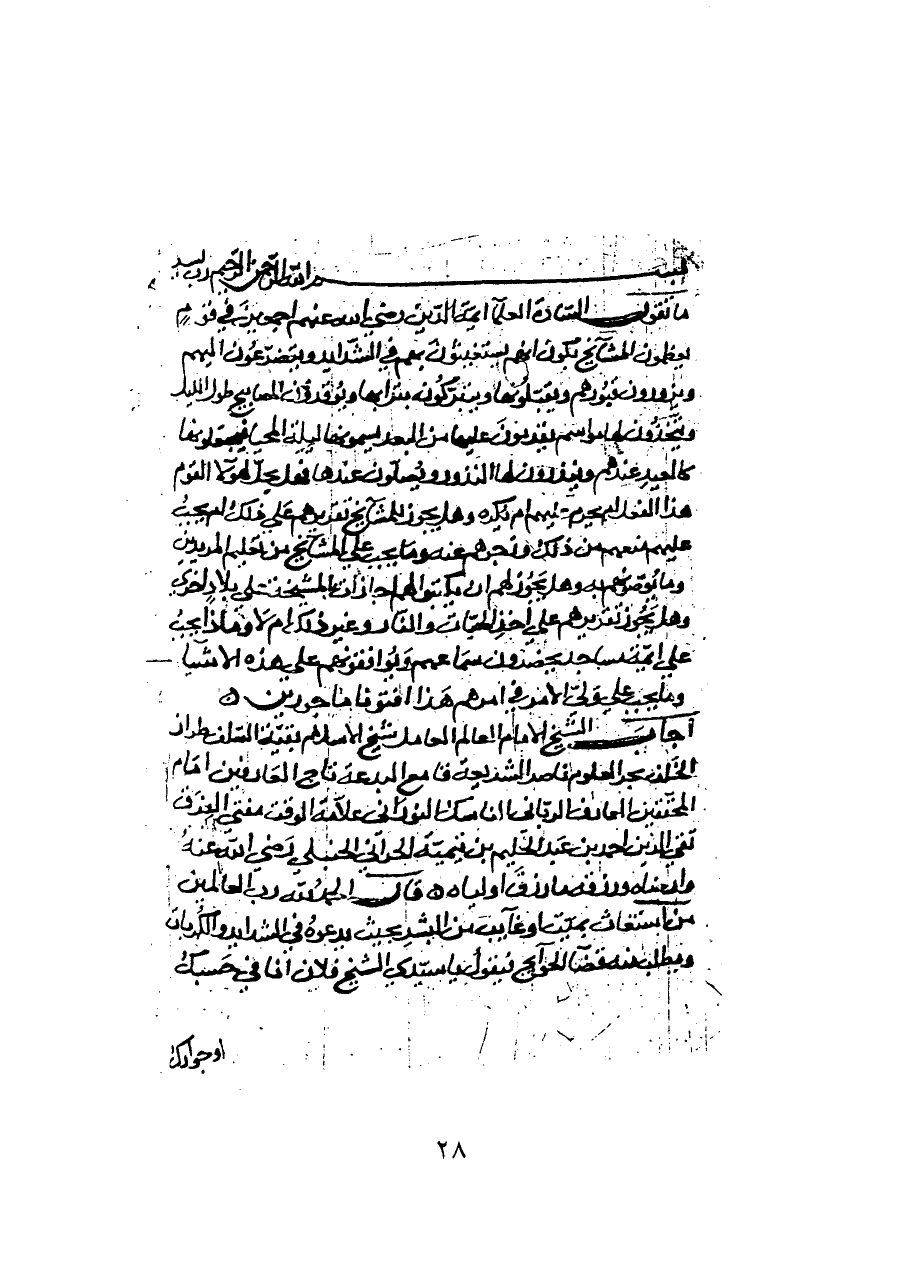 بسم الله الرحمن الرحيم
ما تقول السادة العلمآ ايمة الدين رضي الله عنهم اجمعين في قوم
يعظمون المشآيخ بكون انهم يستغيثون بهم في الشدايد ويتضرعون اليهم
ويزورون قبورهم ويقبلونها ويتبركون بترابها ويوقدون المصابيح طول الليل
ويتخذون لها مواسم يقدمون عليها من البعد يسمونها ليلة المحيا فيجعلونها
كالعيد عندهم وينذرون لها النذور ويصلون عندها فهل يحل لهولا القوم
هذا الفعل ام يحرم عليهم ام يكره وهل يجوز للمشآيخ تقريرهم على ذلك ام يجب
عليهم منعهم من ذلك وزجرهم عنه وما يجب على المشآيخ من تعليم المريدين
وما يوصونهم به وهل يجوز لهم ان يكتبوا لهم اجازات بالمشيخة على بلاد اخرى
وهل يجوز تقريرهم على اخذ الحيات والنار وغير ذلك ام لا وماذا يجب
على ايمة مساجد يحضرون سماعهم ويوافقونهم على هذه الاشيا
وما يجب على ولي الامر في امرهم هذا افتونا ماجورين
أجاب الشيخ الامام العالم العامل شيخ الاسلام بقية السلف طراز
الخلف بحر العلوم ناصر الشريعة قامع البدعة تاج العارفين امام
المحققين العارف الرباني الناسك النوراني علامة الوقت مفتي الفرق
تقي الدين احمد بن عبد الحليم بن تيمية الحراني الحنبلي رضي الله عنه
وارضاه ورزقه ما رزق اولياه قال الحمد لله رب العالمين
من استغاث بميت او غايب من البشر بحيث يدعوه في الشدايد والكربات
ويطلب منه قضا الحوايج فيقول يا سيدي الشيخ فلان انا في حسبك
او جوارك
٢٨